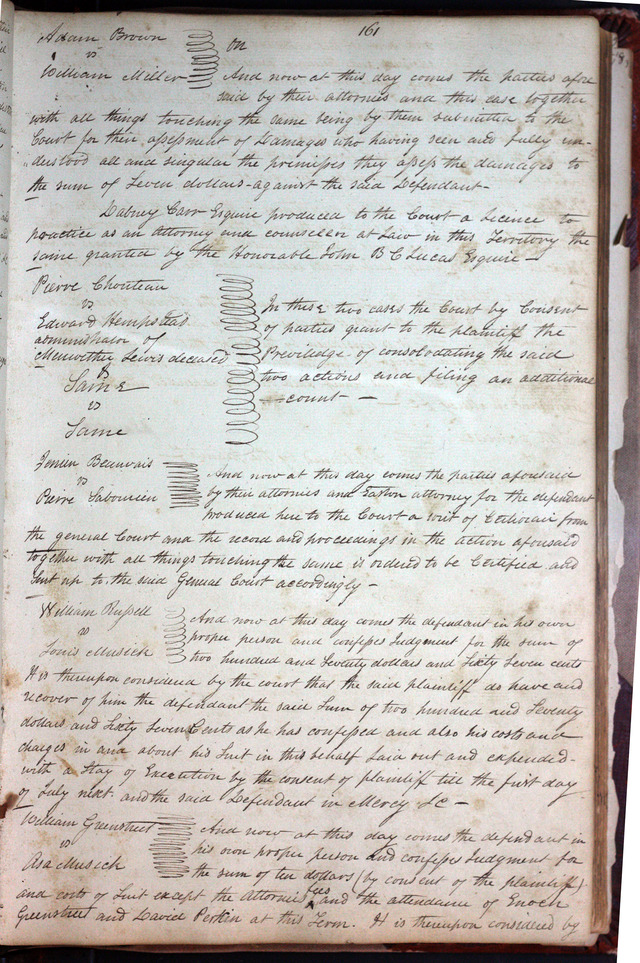 161
Adam Brown
vs
on
William Miller And now at this day comes the parties afore
said by their attornies and this case together
with all things touching the same being by them submitted to the
Court for their assessment of Damages who having seen and fully un-
derstood all and singular the premises they assess the damages to
the sum of Seven dollars against the said Defendant-
Dabney Carr Esquire produced to the Court a Licence to
practice as an attorney and counseler at Law in this Territory the
same granted by the Honorable John B C Lucas Esquire-
Pierre Chouteau
vs
Edward Hempstead
administrator of
Meriwether Lewis deceased
Same
vs
Same
In these two cases the Court by Consent
of parties grant to the plaintiff the
Priviledge of consolodating the said
two actions and filing an additional
-count-
Beauvais
vs
Pierre
And now at this day comes the parties aforesaid
by their attornies and Easton attorney for the defendant
produced here to the Court a writ of from
the general Court and the record and proceedings in the action aforesaid
together with all things touching the same is ordered to be Certified and
Sent up to the said General Court accordingly-
William Russell
vs
Louis Musick
And now at this day comes the defendant in his own
proper person and confesses Judgment for the sum of
two hundred and Seventy dollars and Sixty Seven cents
It is thereupon considered by the court that the said plaintiff do have and
recover of him the defendant the said Sum of two hundred and Seventy
dollars and Sixty Seven Cents as he has confessed and also his costs and
charges in and about his Suit in this behalf Laid out and expended-
with a Stay of Execution by the consent of plaintiff till the first day
of July next and the said Defendant in Mercy &c-
William Greenstreet
vs
Asa Musick
And now at this day comes the defendant in
his own proper person and confesses Judgment for
the sum of ten dollars (by consent of the plaintiff)
and costs of Suit except the Attornies fees and the attendance of Enoch
Greenstreet and David Perkin at this Term. It is thereupon considered by